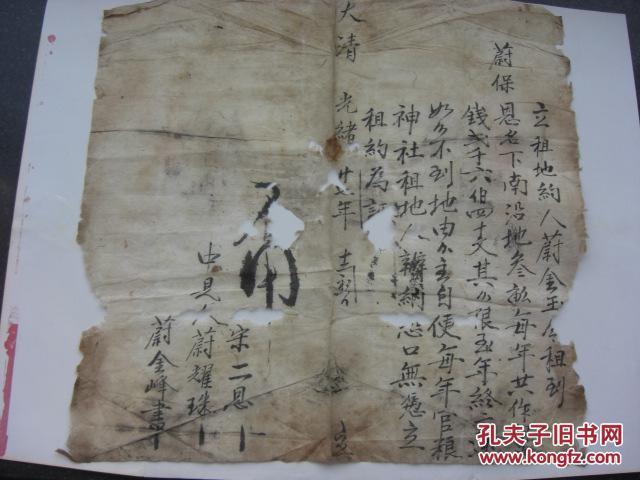 立租地約人蔚金玉今租到
蔚保恩名下南沿地叁畝每年共作
錢弍千六伯四十文其分限至年終
如分不到地由分主自便每年官粮
神社租地人辦納恐口無憑立
租約為証
大清光緒廿年
立
中見人
宋二恩
蔚耀珠
蔚金峰書
孔夫子旧书网
www.kongfz.com